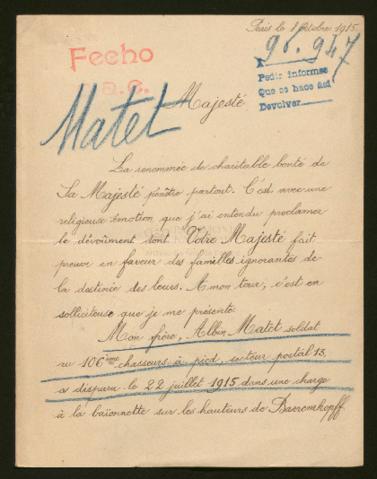 Paris le 1 Octobre 1915
Fecho
a.C.
96.947
Pedir informes
Que se hace así
Devolver
Matet
Majesté
La renommée de charitable bonté de
Sa Majesté pénètre partout. C'est avec une
religieuse émotion que j'ai entendu proclamer
le dévoûment dont Votre Majesté fait
preuve en faveur des familles ignorantes de
la destinée des leurs. A mon tour, c'est en
solliciteuse que je me présente
Mon frère, Albin Matet soldat
au 106ème chasseurs à pied, secteur postal 13,
a disparu le 22 juillet 1915 dans une charge
à la baïonnette sur les hauteurs de Barrenkopff